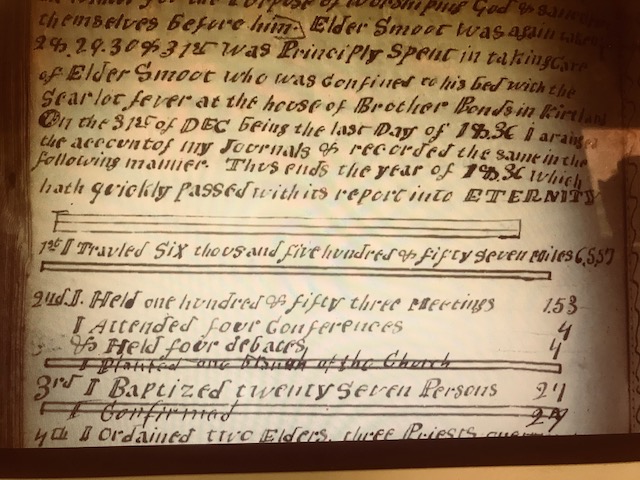 for the Porpose of Worshiping God &
themselves before him. Elder Smoot was again taken
28, 29. 30 & 31st was Principly Spent in taking Care
of Elder Smoot who was Confined to his bed with the
Scarlot, fever at the house of Brother Bonds in Kirtland
On the 31st of DEC being the last Day of 1836 I
the account of my Journals & recorded the same in the
following manner. Thus ends the year of 1836 which
hath quickly passed with its report into ETERNITY
1st I Travled Six thousand five hundred & fifty Seven Miles 6,557
2nd I. Held one hundred & fifty three Meetings 153
I Attended four Conferences 4
& Held four debates, 4
I Planted one Branch of the Church
3rd I Baptized twenty Seven Persons 27
I Confirmed
4th I Ordained two Elders, three Priests